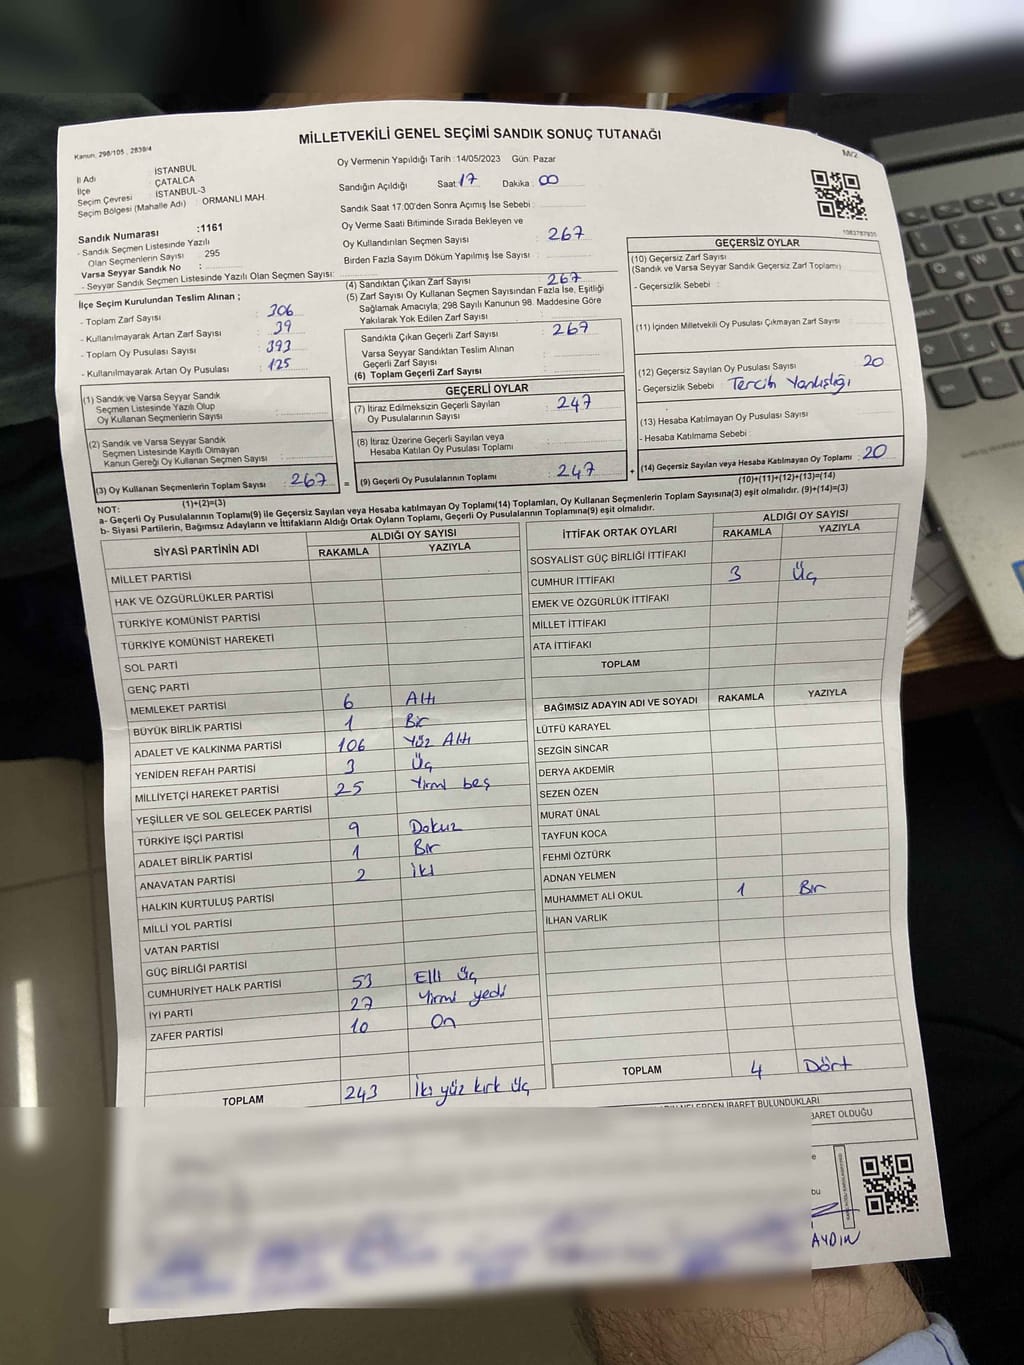 Kanun, 298/105 , 2839/4
MİLLETVEKİLİ GENEL SEÇİMİ SANDIK SONUÇ TUTANAĞI
M/2
İl Adı İSTANBUL
İlçe ÇATALCA
Seçim Çevresi İSTANBUL-3
Seçim Bölgesi (Mahalle Adı) : ORMANLI MAH
Sandık Numarası :1161
- Sandık Seçmen Listesinde Yazılı
Olan Seçmenlerin Sayısı : 295
Varsa Seyyar Sandık No :
- Seyyar Sandık Seçmen Listesinde Yazılı Olan Seçmen Sayısı:
İlçe Seçim Kurulundan Teslim Alınan ;
- Toplam Zarf Sayısı : 306
- Kullanılmayarak Artan Zarf Sayısı : 39
- Toplam Oy Pusulası Sayısı : 393
- Kullanılmayarak Artan Oy Pusulası : 125
(1) Sandık ve Varsa Seyyar Sandık
Seçmen Listesinde Yazılı Olup
Oy Kullanan Seçmenlerin Sayısı :
(2) Sandık ve Varsa Seyyar Sandık
Seçmen Listesinde Kayıtlı Olmayan
Kanun Gereği Oy Kullanan Seçmen Sayısı :
(3) Oy Kullanan Seçmenlerin Toplam Sayısı : 267 =
(1)+(2)=(3)
Oy Vermenin Yapıldığı Tarih :14/05/2023 Gün: Pazar
Sandığın Açıldığı Saat: 17 Dakika : 00
Sandık Saat 17.00'den Sonra Açımış İse Sebebi :
Oy Verme Saati Bitiminde Sırada Bekleyen ve
Oy Kullandırılan Seçmen Sayısı : 267
Birden Fazla Sayım Döküm Yapılmış İse Sayısı :
(4) Sandıktan Çıkan Zarf Sayısı : 267
(5) Zarf Sayısı Oy Kullanan Seçmen Sayısından Fazla İse, Eşitliği
Sağlamak Amacıyla; 298 Sayılı Kanunun 98. Maddesine Göre
Yakılarak Yok Edilen Zarf Sayısı :
Sandıkta Çıkan Geçerli Zarf Sayısı : 267
Varsa Seyyar Sandıktan Teslim Alınan
Geçerli Zarf Sayısı :
(6) Toplam Geçerli Zarf Sayısı :
GEÇERLİ OYLAR
(7) İtiraz Edilmeksizin Geçerli Sayılan
Oy Pusulalarının Sayısı : 247
(8) İtiraz Üzerine Geçerli Sayılan veya
Hesaba Katılan Oy Pusulası Toplamı :
(9) Geçerli Oy Pusulalarının Toplamı : 247 +
1082787935
GEÇERSİZ OYLAR
(10) Geçersiz Zarf Sayısı
(Sandık ve Varsa Seyyar Sandık Geçersiz Zarf Toplamı)
- Geçersizlik Sebebi :
(11) İçinden Milletvekili Oy Pusulası Çıkmayan Zarf Sayısı
(12) Geçersiz Sayılan Oy Pusulası Sayısı : 20
- Geçersizlik Sebebi : Tercih Yanlışlığı
(13) Hesaba Katılmayan Oy Pusulası Sayısı
- Hesaba Katılmama Sebebi :
(14) Geçersiz Sayılan veya Hesaba Katılmayan Oy Toplamı : 20
(10)+(11)+(12)+(13)=(14)
NOT:
a- Geçerli Oy Pusulalarının Toplamı(9) ile Geçersiz Sayılan veya Hesaba katılmayan Oy Toplamı(14) Toplamları, Oy Kullanan Seçmenlerin Toplam Sayısına(3) eşit olmalıdır. (9)+(14)=(3)
b- Siyasi Partilerin, Bağımsız Adayların ve İttifakların Aldığı Ortak Oyların Toplamı, Geçerli Oy Pusulalarının Toplamına(9) eşit olmalıdır.
SİYASİ PARTİNİN ADI ALDIĞI OY SAYISI
RAKAMLA YAZIYLA
MİLLET PARTİSİ
HAK VE ÖZGÜRLÜKLER PARTİSİ
TÜRKİYE KOMÜNİST PARTİSİ
TÜRKİYE KOMÜNİST HAREKETİ
SOL PARTİ
GENÇ PARTİ
MEMLEKET PARTİSİ 6 Altı
BÜYÜK BİRLİK PARTİSİ 1 Bir
ADALET VE KALKINMA PARTİSİ 106 Yüz Altı
YENİDEN REFAH PARTİSİ 3 Üç
MİLLİYETÇİ HAREKET PARTİSİ 25 Yirmi beş
YEŞİLLER VE SOL GELECEK PARTİSİ
TÜRKİYE İŞÇİ PARTİSİ 9 Dokuz
ADALET BİRLİK PARTİSİ 1 Bir
ANAVATAN PARTİSİ 2 İki
HALKIN KURTULUŞ PARTİSİ
MİLLİ YOL PARTİSİ
VATAN PARTİSİ
GÜÇ BİRLİĞİ PARTİSİ
CUMHURİYET HALK PARTİSİ 53 Elli üç
İYİ PARTİ 27 Yirmi yedi
ZAFER PARTİSİ 10 On
TOPLAM 243 İki yüz kırk üç
İTTİFAK ORTAK OYLARI ALDIĞI OY SAYISI
RAKAMLA YAZIYLA
SOSYALİST GÜÇ BİRLİĞİ İTTİFAKI
CUMHUR İTTİFAKI 3 Üç
EMEK VE ÖZGÜRLÜK İTTİFAKI
MİLLET İTTİFAKI
ATA İTTİFAKI
TOPLAM
BAĞIMSIZ ADAYIN ADI VE SOYADI RAKAMLA YAZIYLA
LÜTFÜ KARAYEL
SEZGİN SİNCAR
DERYA AKDEMİR
SEZEN ÖZEN
MURAT ÜNAL
TAYFUN KOCA
FEHMİ ÖZTÜRK
ADNAN YELMEN
MUHAMMET ALİ OKUL 1 Bir
İLHAN VARLIK
TOPLAM 4 Dört
İBARET BULUNDUKLARI
BARET OLDUĞU
e
bu
AYDIN